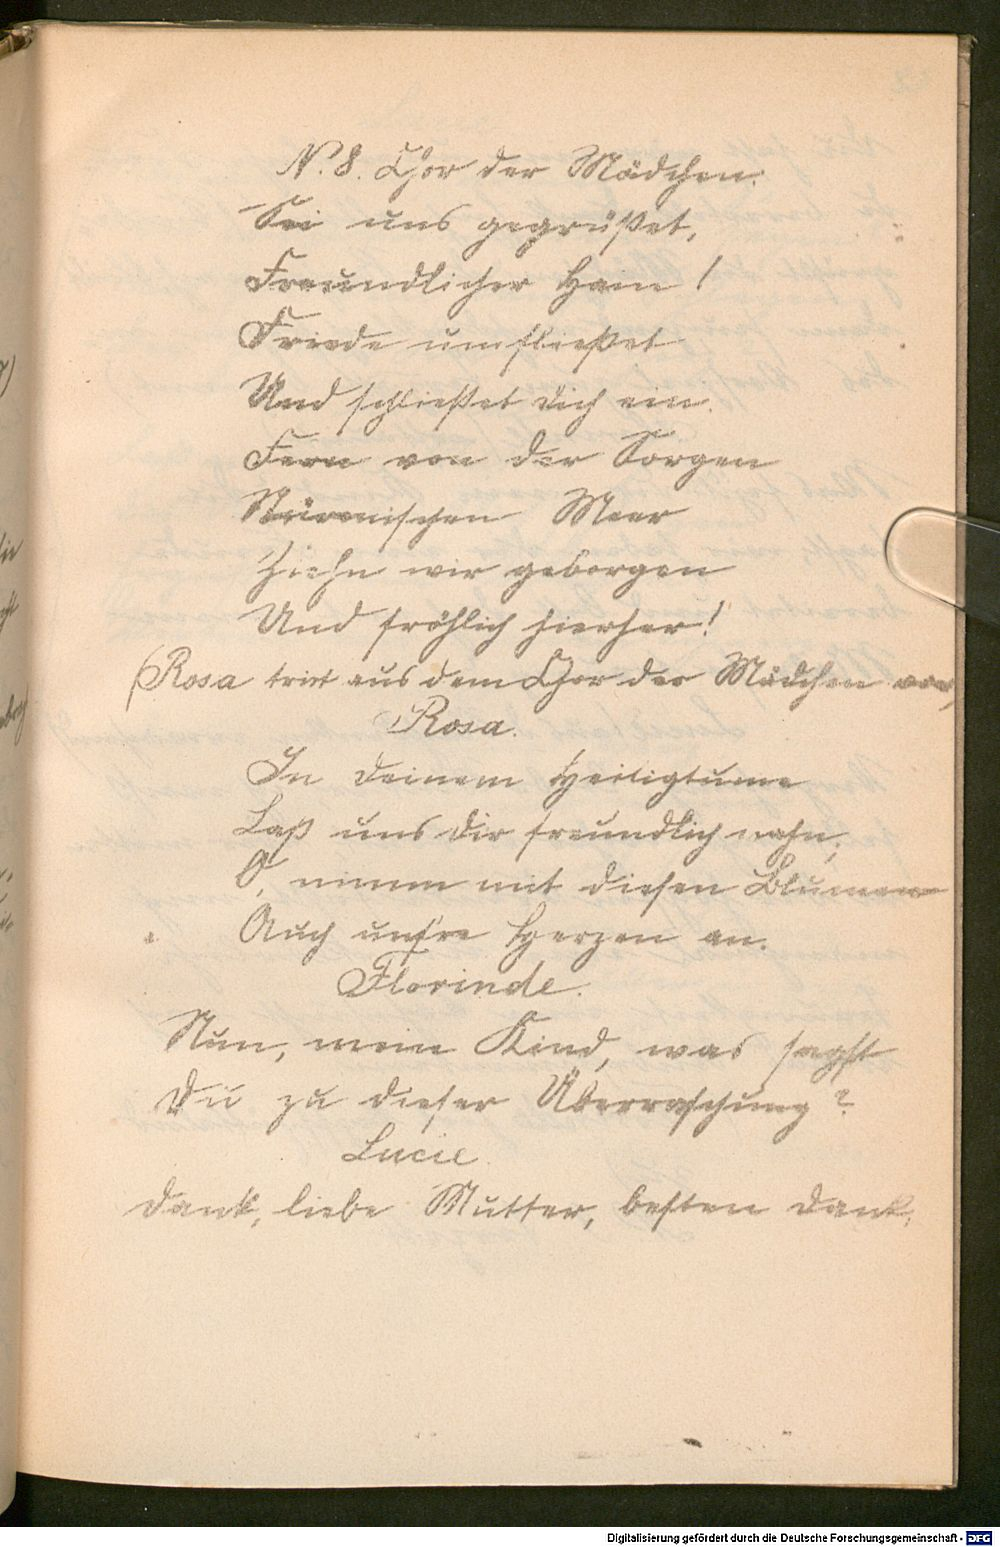 N. 8. Chor der Mädchen.
Sei uns gegrüßet,
Freundlicher Hain!
Friede umfließet
Und schließet dich ein.
Fern von der Sorgen
Stürmischen Meer
Ziehn wir geborgen
Und fröhlich hierher!
(Rosa tritt aus dem Chor der Mädchen vor,
Rosa.
In deinem Heiligtume
Laß uns dir freundlich nahn,
O, nimm mit diesen Blumen
Auch unsre Herzen an.
Florinde.
Nun, mein Kind, was sagst
Du zu dieser Überraschung?
Lucie.
Dank, liebe Mutter, besten Dank,
Digitalisierung gefördert durch die Deutsche Forschungsgemeinschaft - DFG